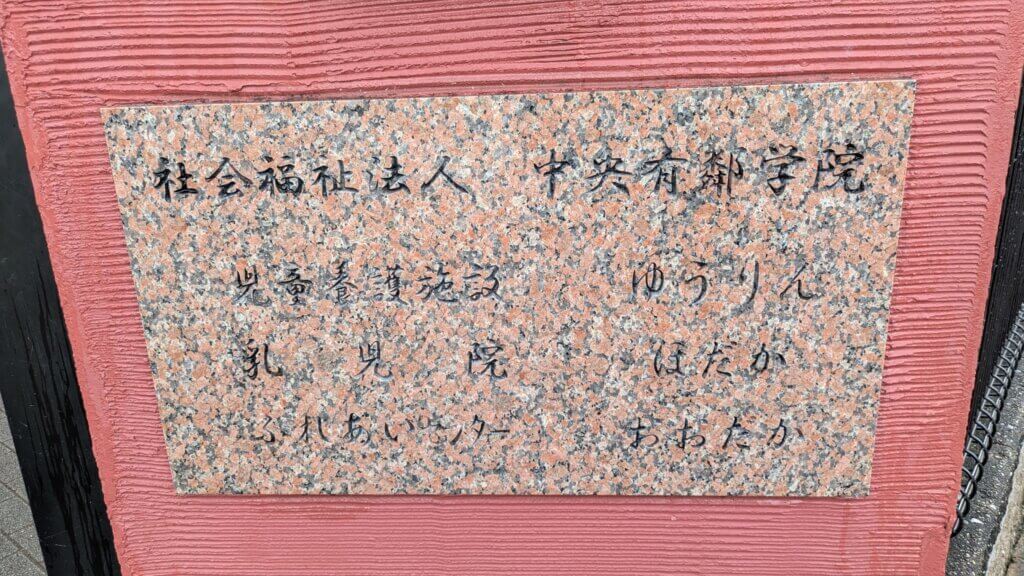 社会福祉法人 中央有鄰学院
児童養護施設 ゆうりん
乳児院 ほだか
ふれあいセンター おおたか